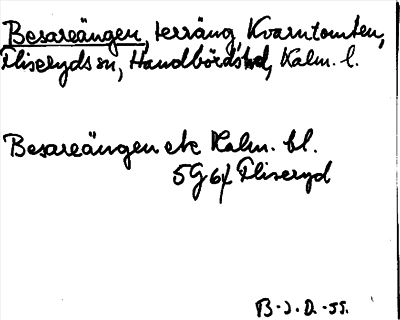 Besareängen, terräng Kvarntomten,
Fliseryds sn, Handbörds hd, Kalm. l.
Besareängen ek Kalm. bl.
5G 6f Fliseryd
B-J.D.-55.